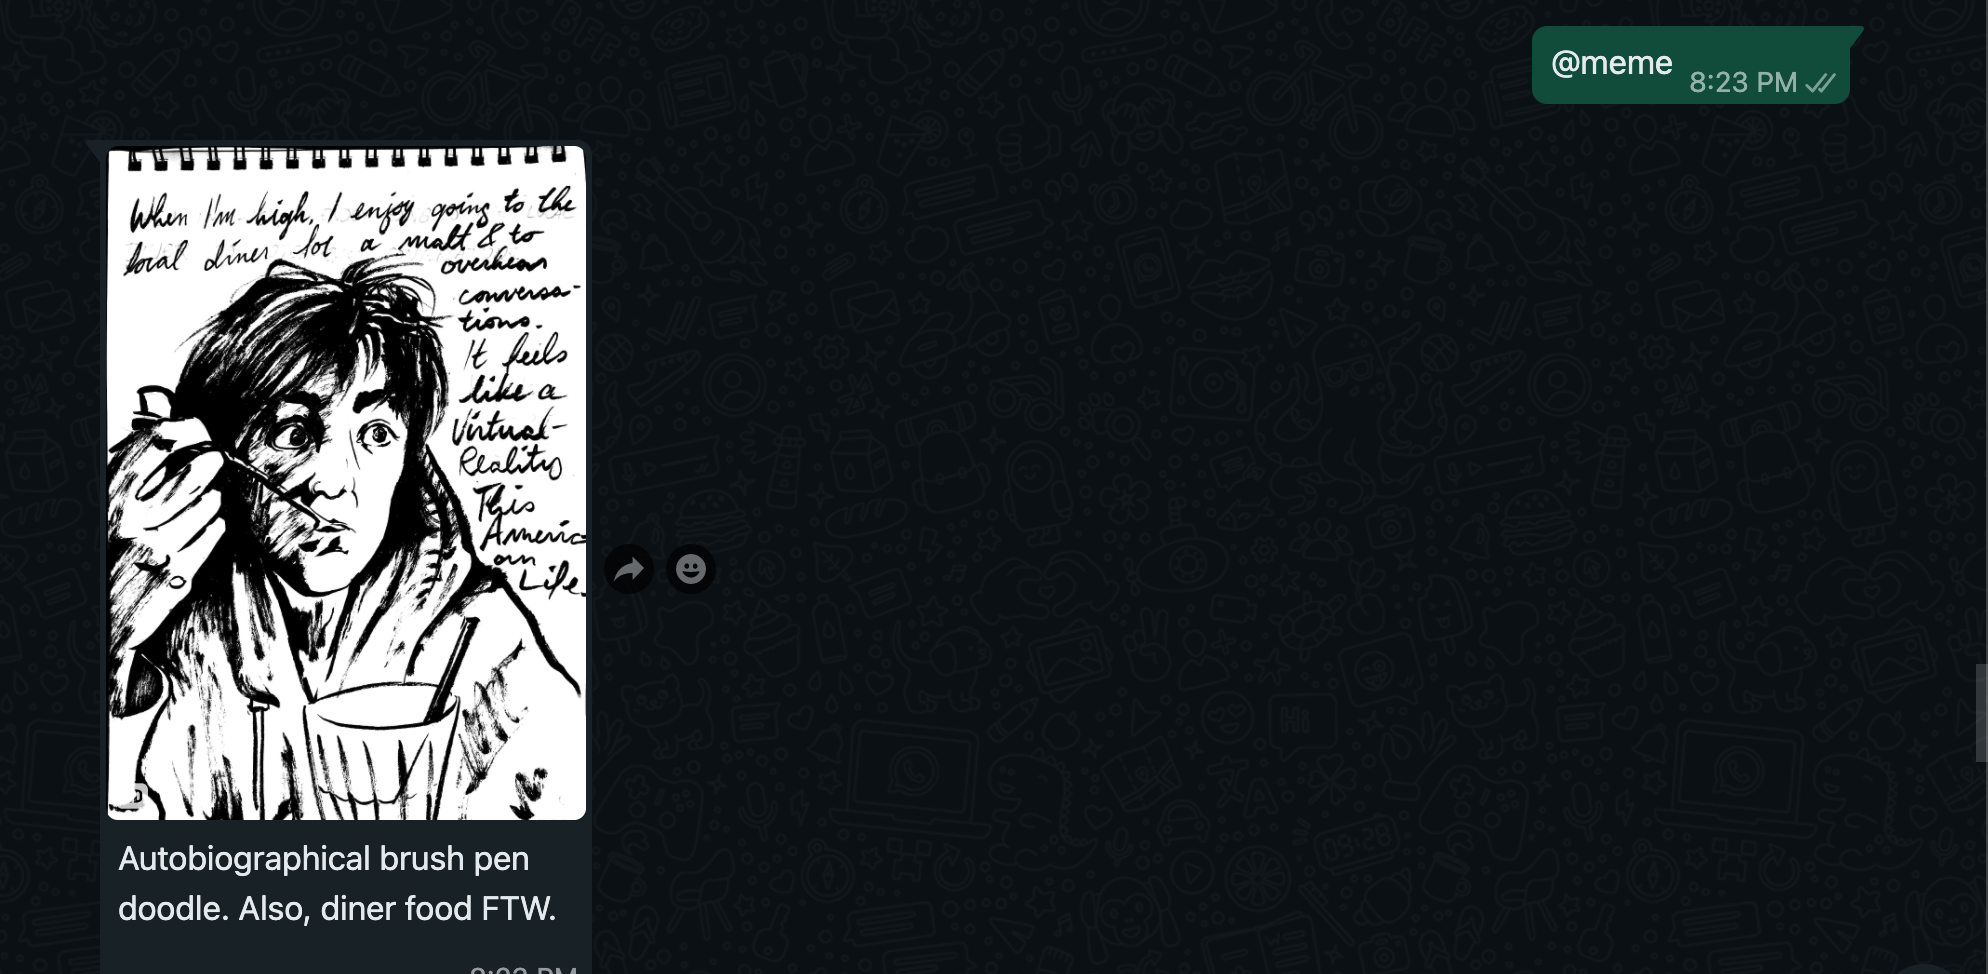 @meme
8:23 PM
When I'm high, I enjoy going to the
local diner for a malt & to
overhear
conversa-
tions.
It feels
like a
Virtual-
Reality
This
Americ-
an
Life.
Autobiographical brush pen
doodle. Also, diner food FTW.